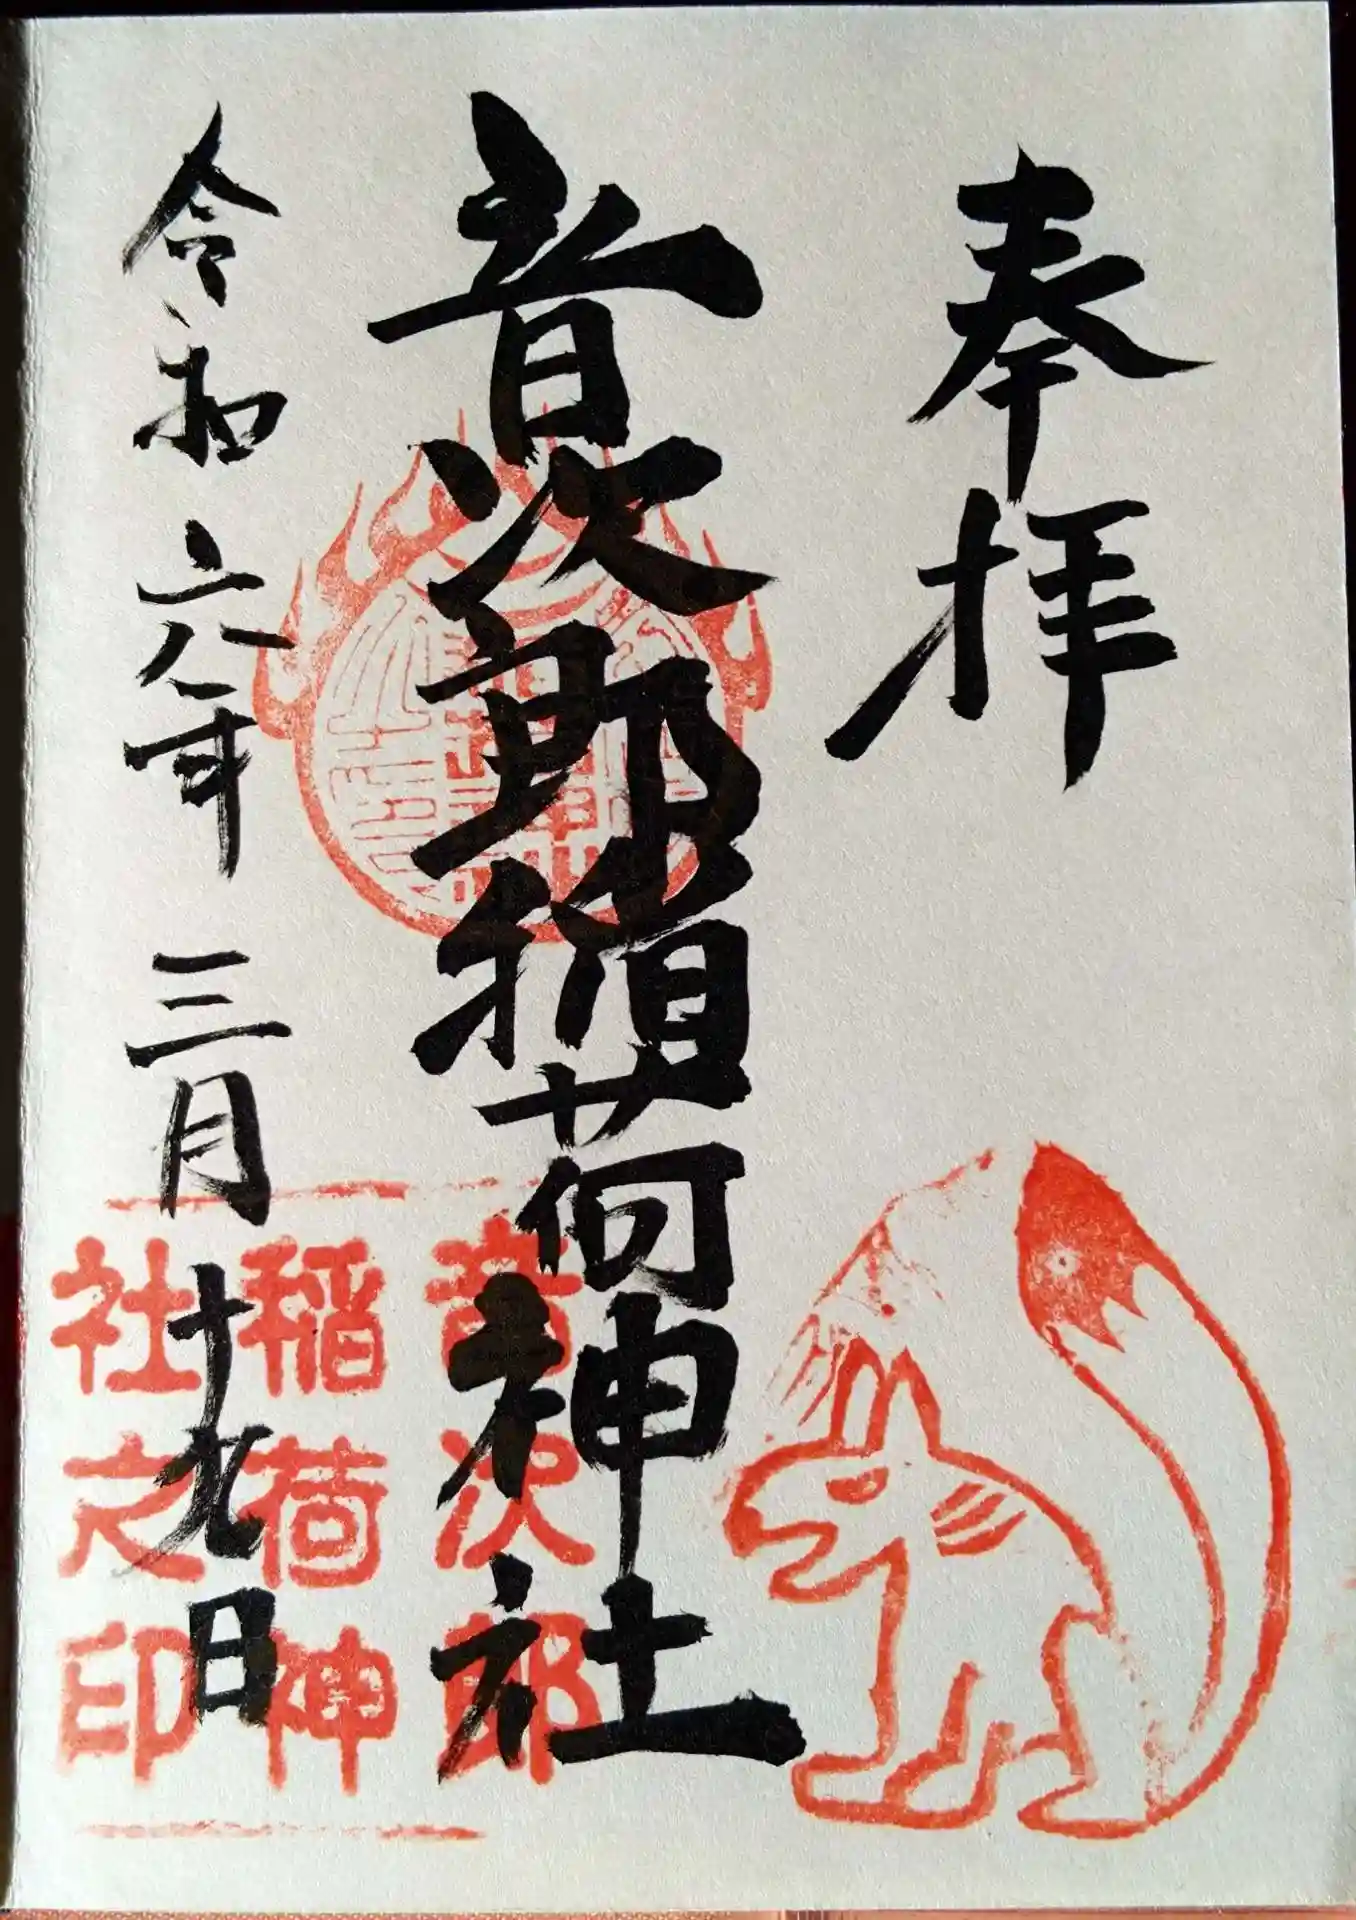 奉拝
音次郎稲荷神社
令和六年三月十九日
音次郎
稲荷神
社之印